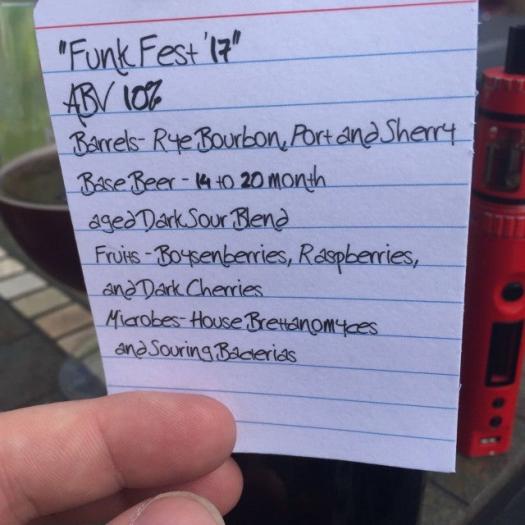 "Funk Fest '17"
ABV 10%
Barrels- Rye Bourbon, Port and Sherry
Base Beer - 14 to 20 month
aged Dark Sour Blend
Fruits - Boysenberries, Raspberries,
and Dark Cherries
Microbes- House Brettanomyces
and Souring Bacterias